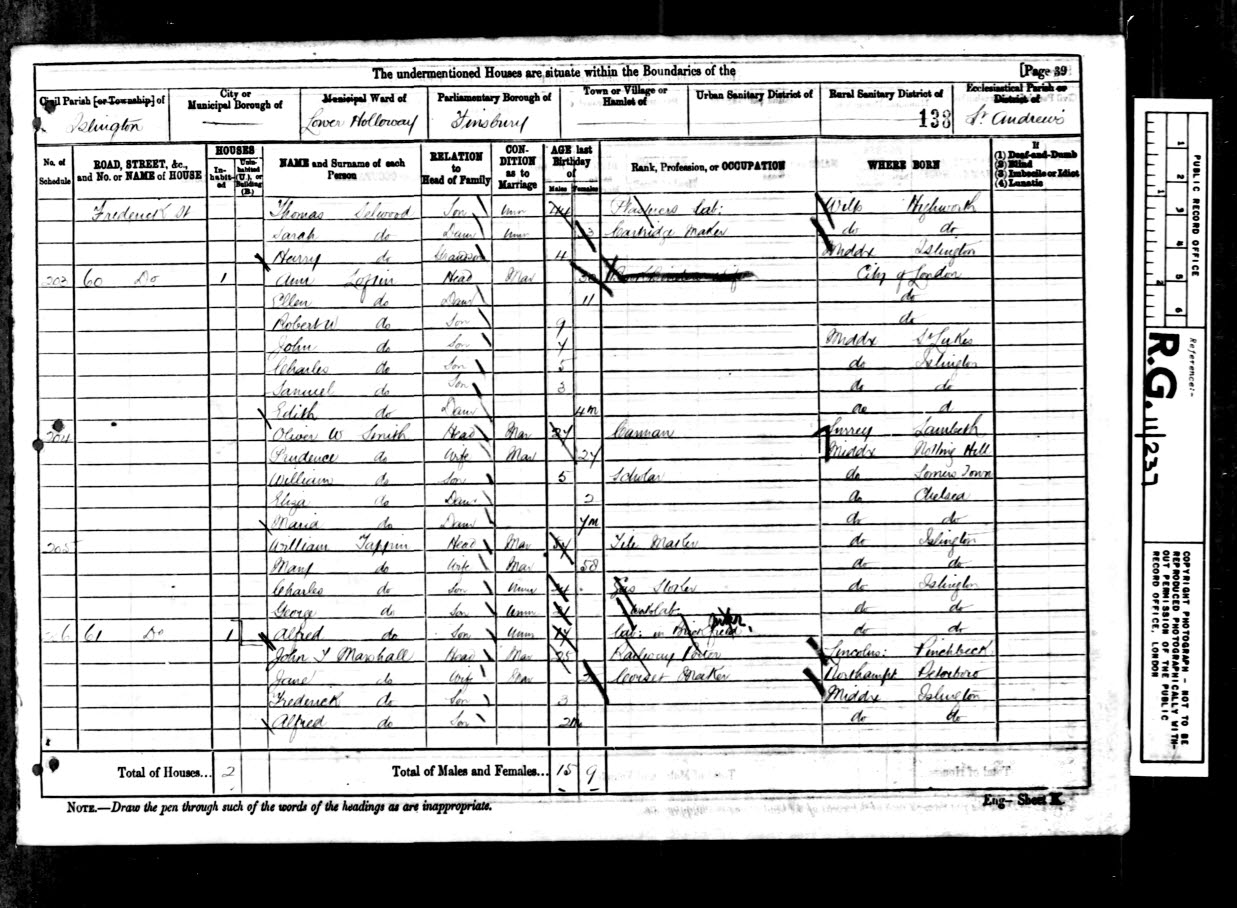 The undermentioned Houses are situate within the Boundaries of the [Page 39
Civil Parish [or Township] of
City or Municipal Borough of
Municipal Ward of
Parliamentary Borough of
Town or Village or Hamlet of
Urban Sanitary District of
Rural Sanitary District of
Ecclesiastical Parish or District of
Islington Lower Holloway Finsbury 133 St Andrews
No. of Schedule
ROAD, STREET, &c., and No. or NAME of HOUSE
HOUSES
Inhabited
Uninhabited (U.), or Building (B.)
NAME and Surname of each Person
RELATION to Head of Family
CONDITION as to Marriage
AGE last Birthday of
Males Females
Rank, Profession, or OCCUPATION
WHERE BORN
If
(1) Deaf-and-Dumb
(2) Blind
(3) Imbecile or Idiot
(4) Lunatic
Frederick St Thomas Selwood Son Unm Wilts Highworth
Sarah do Daur Unm Cartridge Maker do do
Harry do Grandson 4 Middx Islington
203 60 Do 1 Ann Head Mar City of London
Ellen do Daur 11 do
Robert W do Son 9 do
John do Son 7 Middx St Lukes
Charles do Son 5 do Islington
Samuel do Son 3 do do
Edith do Daur 4m do d
204 Oliver W Smith Head Mar 27 Carman Surrey Lambeth
Prudence do Wife Mar 27 Middx Notting Hill
William do Son 5 Scholar do Somers Town
Eliza do Daur 2 do Chelsea
Maria do Daur 7m do do
205 William Tappin Head Mar Tile Maker do Islington
Mary do Wife Mar 58 do do
Charles do Son Unm Gas Stoker do Islington
George do Son Unm do do
61 Do 1 Alfred do Son Unm Lab: in Brick field do do
John T Marshall Head Mar 25 Railway Porter Lincolns: Pinchbeck
Wife Mar Corset Maker Northampt Peterboro
Frederick do Son 3 Middx Islington
Alfred do Son 2m do do
Total of Houses... 2 Total of Males and Females... 15 9
NOTE.—Draw the pen through such of the words of the headings as are inappropriate.
Eng— Sheet K.
PUBLIC RECORD OFFICE
1 2 3 4 5 6
1 2
Reference:-
R.G. 11/237
COPYRIGHT PHOTOGRAPH - NOT TO BE
REPRODUCED PHOTOGRAPHICALLY WITH-
OUT PERMISSION OF THE PUBLIC
RECORD OFFICE, LONDON